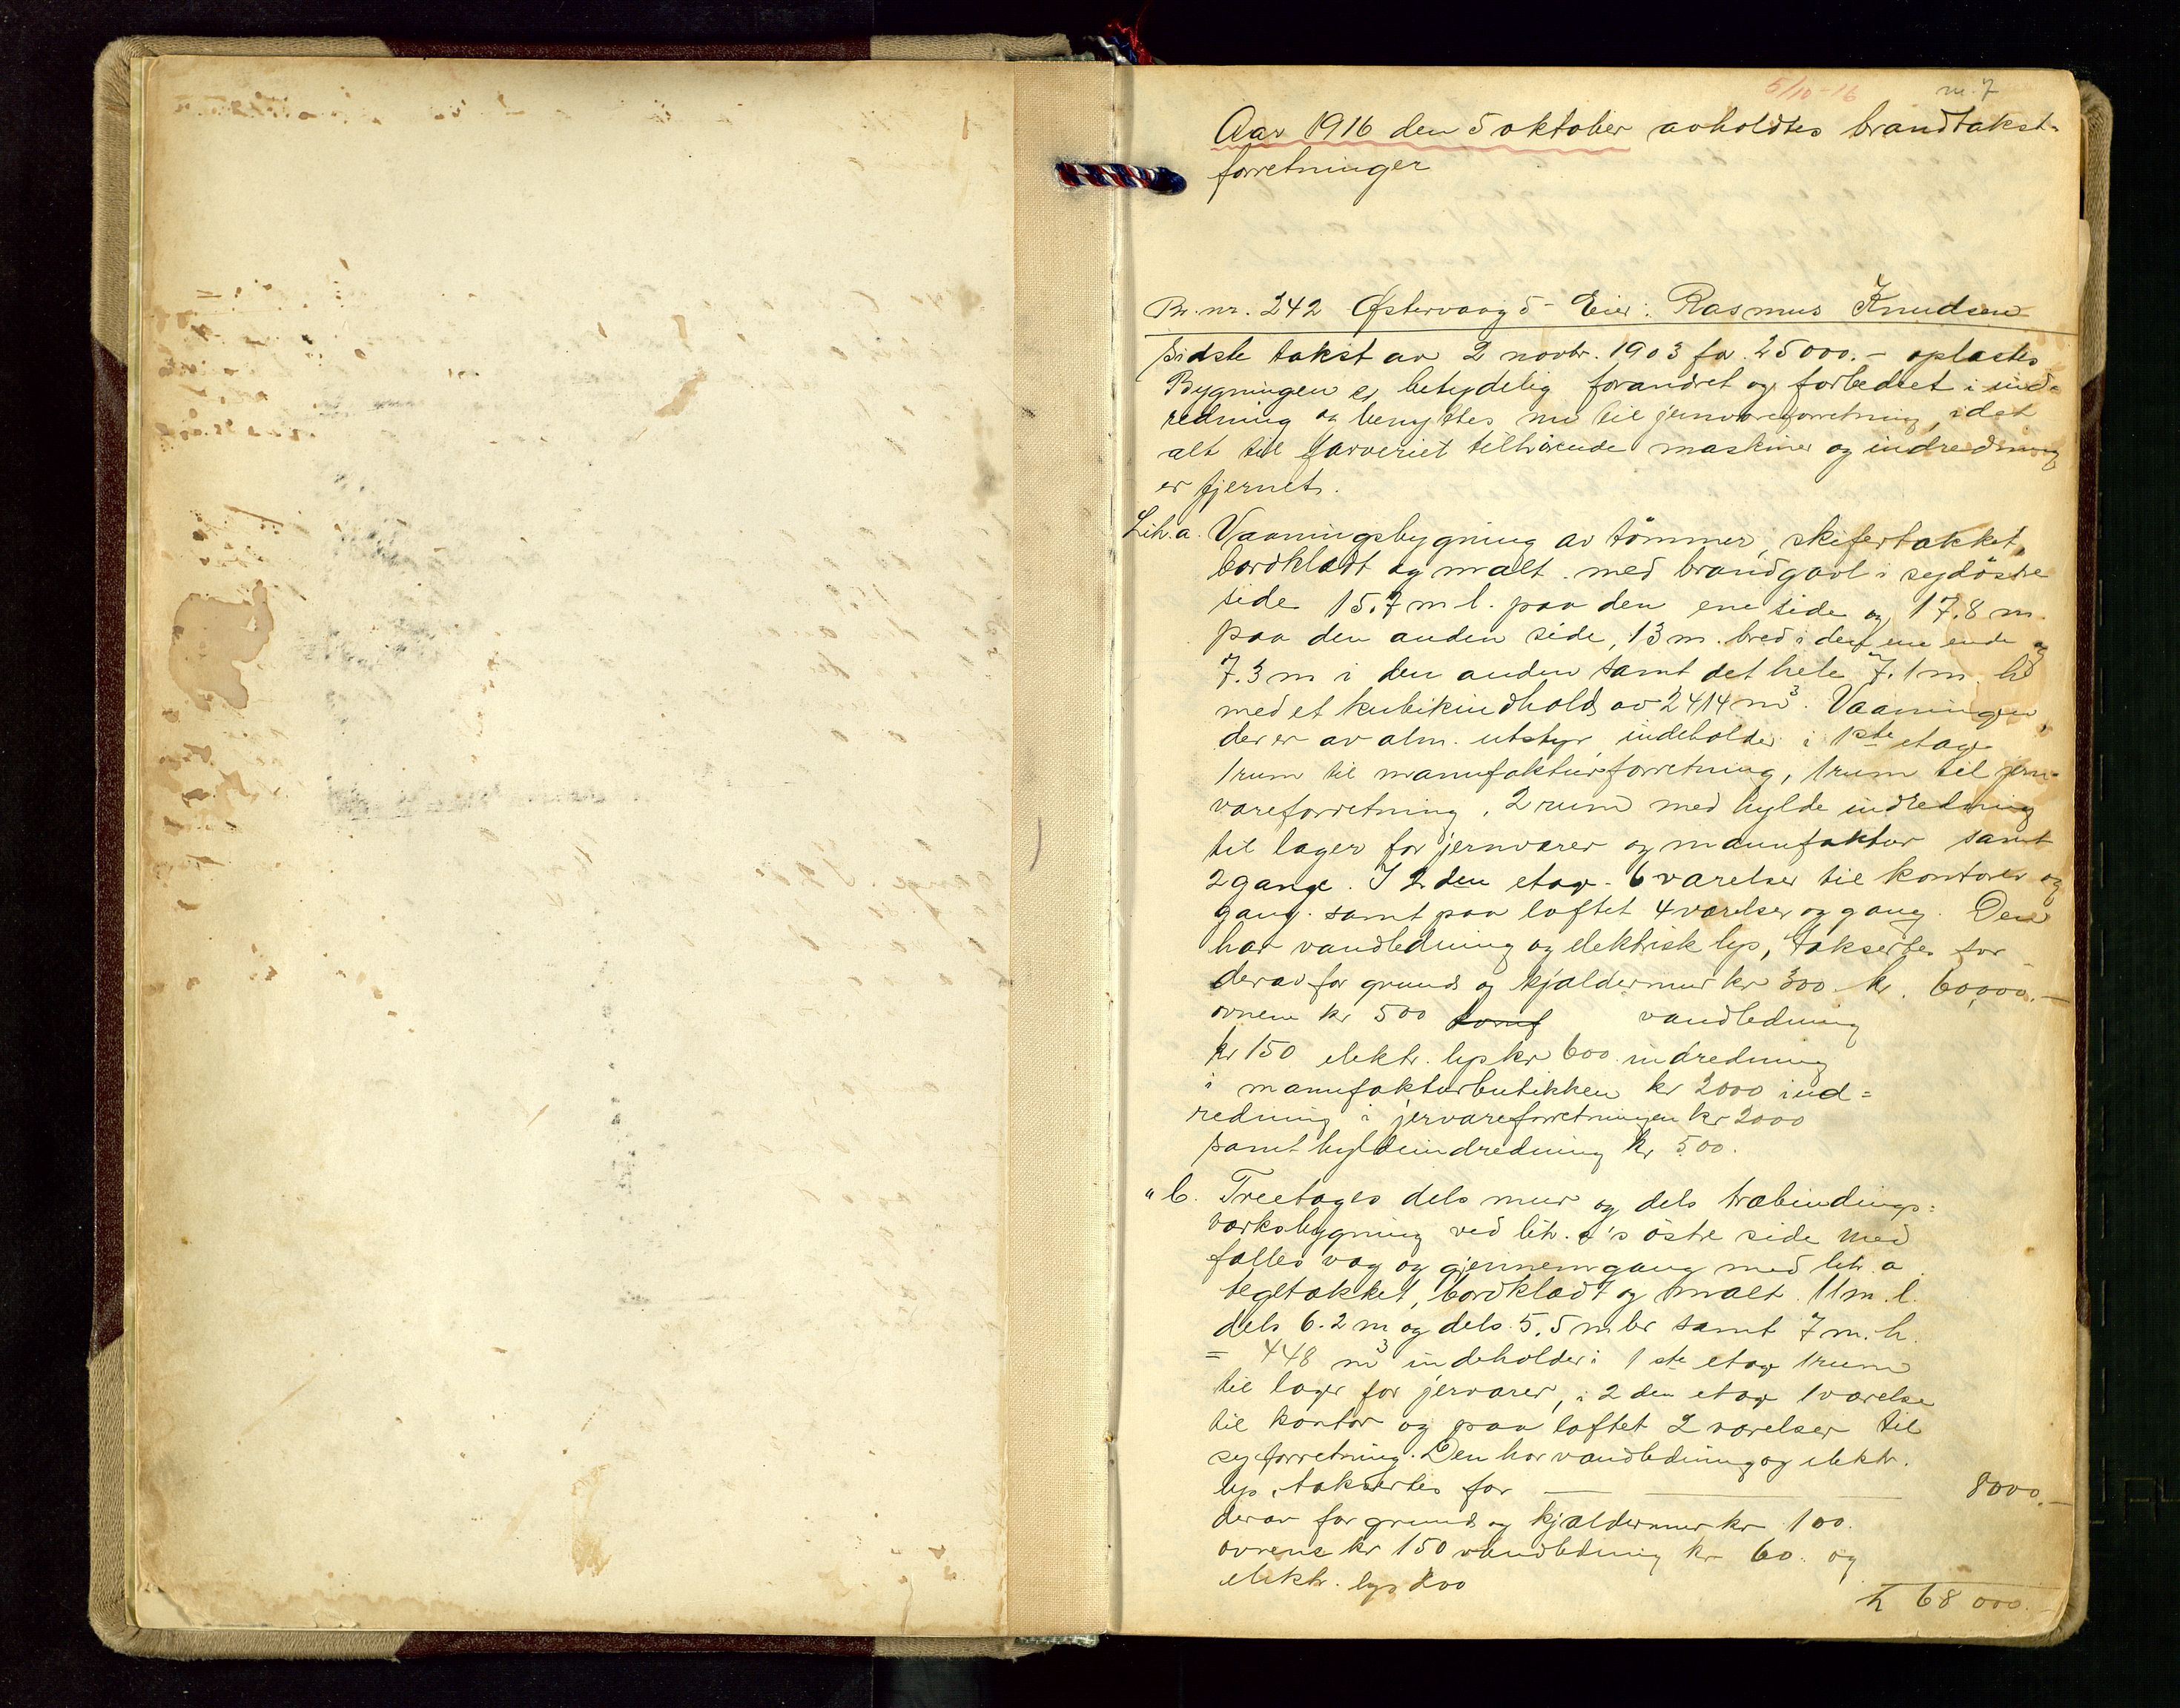 5/10-16
Aar 1916 den 5 oktober avholdtes brandtakst-
forretninger
Br. nr. 242 Østervaag 5 Eier: Rasmus Knudsen
Sidste takst av 2 novbr. 1903 for 25000.- oplæstes
Bygningen er betydelig forandret og forbedret i ind-
redning og benyttes nu til jernvareforretning, idet
alt til farveriet tilhørende maskiner og indredning
er fjernet.
Litr. a. Vaaningsbygning av tömmer, skifertækket,
bordklædt og malt med brandgavl i sydöstre
side 15.7 m l. paa den ene side og 17.8 m
paa den anden side, 13 m. bred i den ene ende og
7.3 m i den anden samt det hele 7.1 m. h
med et kubikindhold av 2414 m³. Vaaningen,
der er av alm. utstyr indeholder i 1ste etage
1 rum til manufakturforretning, 1 rum til jern-
vareforretning, 2 rum med hylde indredning
til lager for jernvarer og manufaktur samt
2 gange. I 2den etage 6 værelser til kontorer og
gang samt paa loftet 4 værelser og gang. Den
har vandledning og elektrisk lys, takseres for
derav for grund og kjældermur kr 300. kr. 60,000.-
ovnene kr 500 vandledning
kr 150 elektr. lys kr 600 indredning
i manufakturbutikken kr 2000 ind=
redning i jervareforretningen kr 2000
samt hyldeindredning kr 500.
" b. Treetages dels mur og dels træbindings=
værksbygning ved litr. a's östre side med
fælles væg og gjennemgang med litr. a
tegltækket, bordklædt og malt. 11 m. l.
dels 6.2 m og dels 5.5 m br samt 7 m. h.
= 448 m³ indeholder i 1ste etage 1 rum
til lager for jervarer, i 2den etage 1 værelse
til kontor og paa loftet 2 værelser til
syforretning. Den har vandledning og elektr.
lys, takseres for 8000.-
derav for grund og kjældermur kr 100.
ovnene kr 150 vandledning kr 60. og
elektr. lys 200
kr 68 000.-